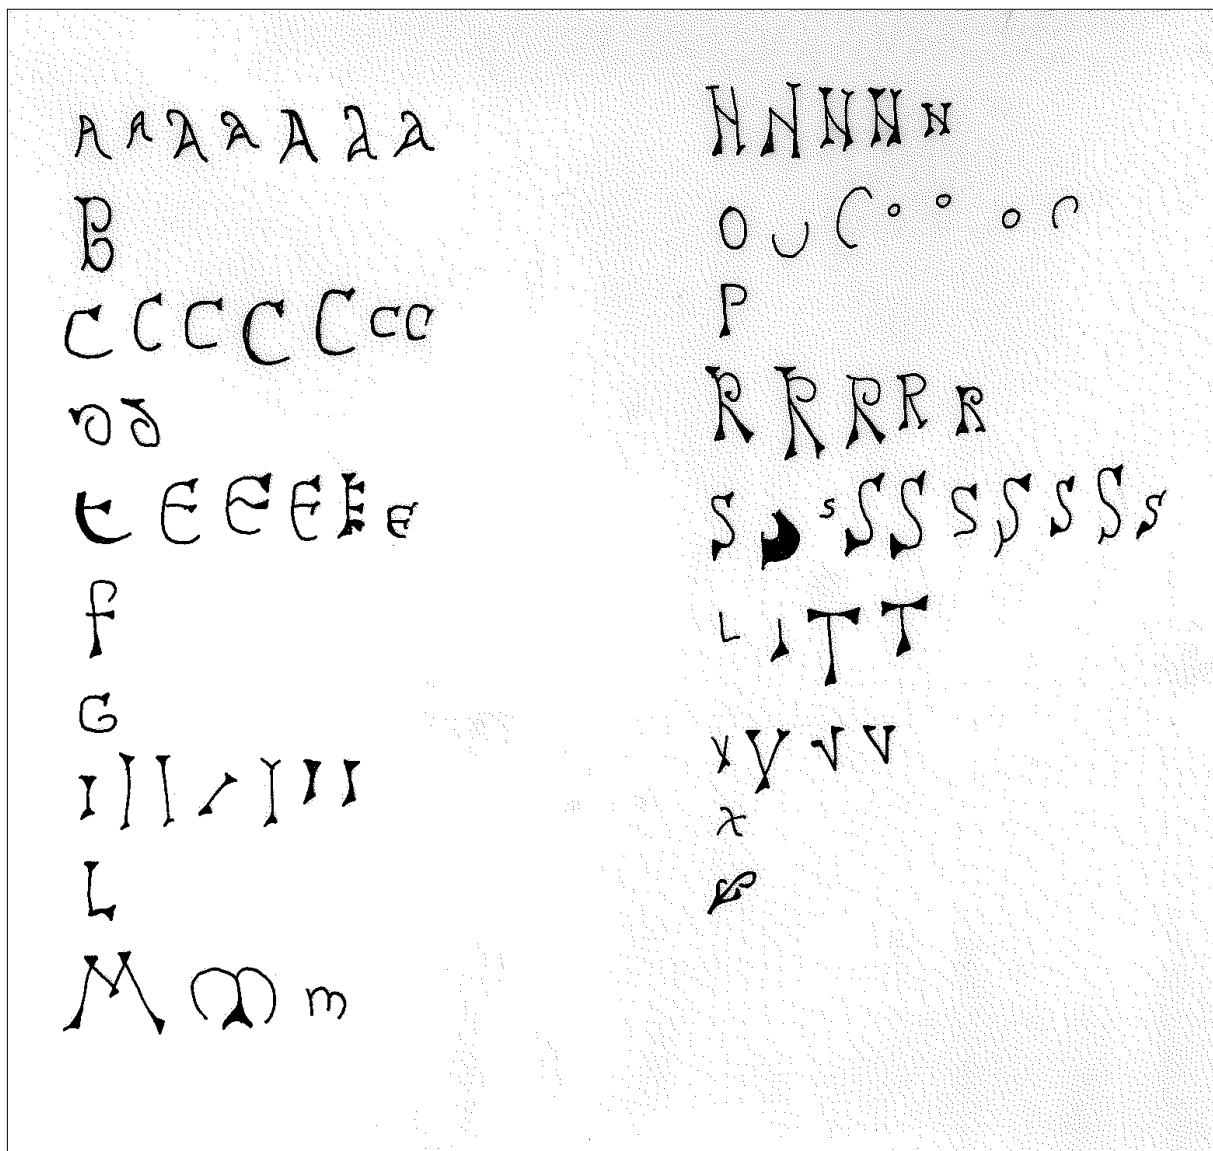 A A A A A A A
B
C C C C C C C
D D
E E E E E E
F
G
I I I I I I I
L
M M m
N N N N N
O o o o
P
R R R R R
S s S S S S S S s
T T
V V V V
X